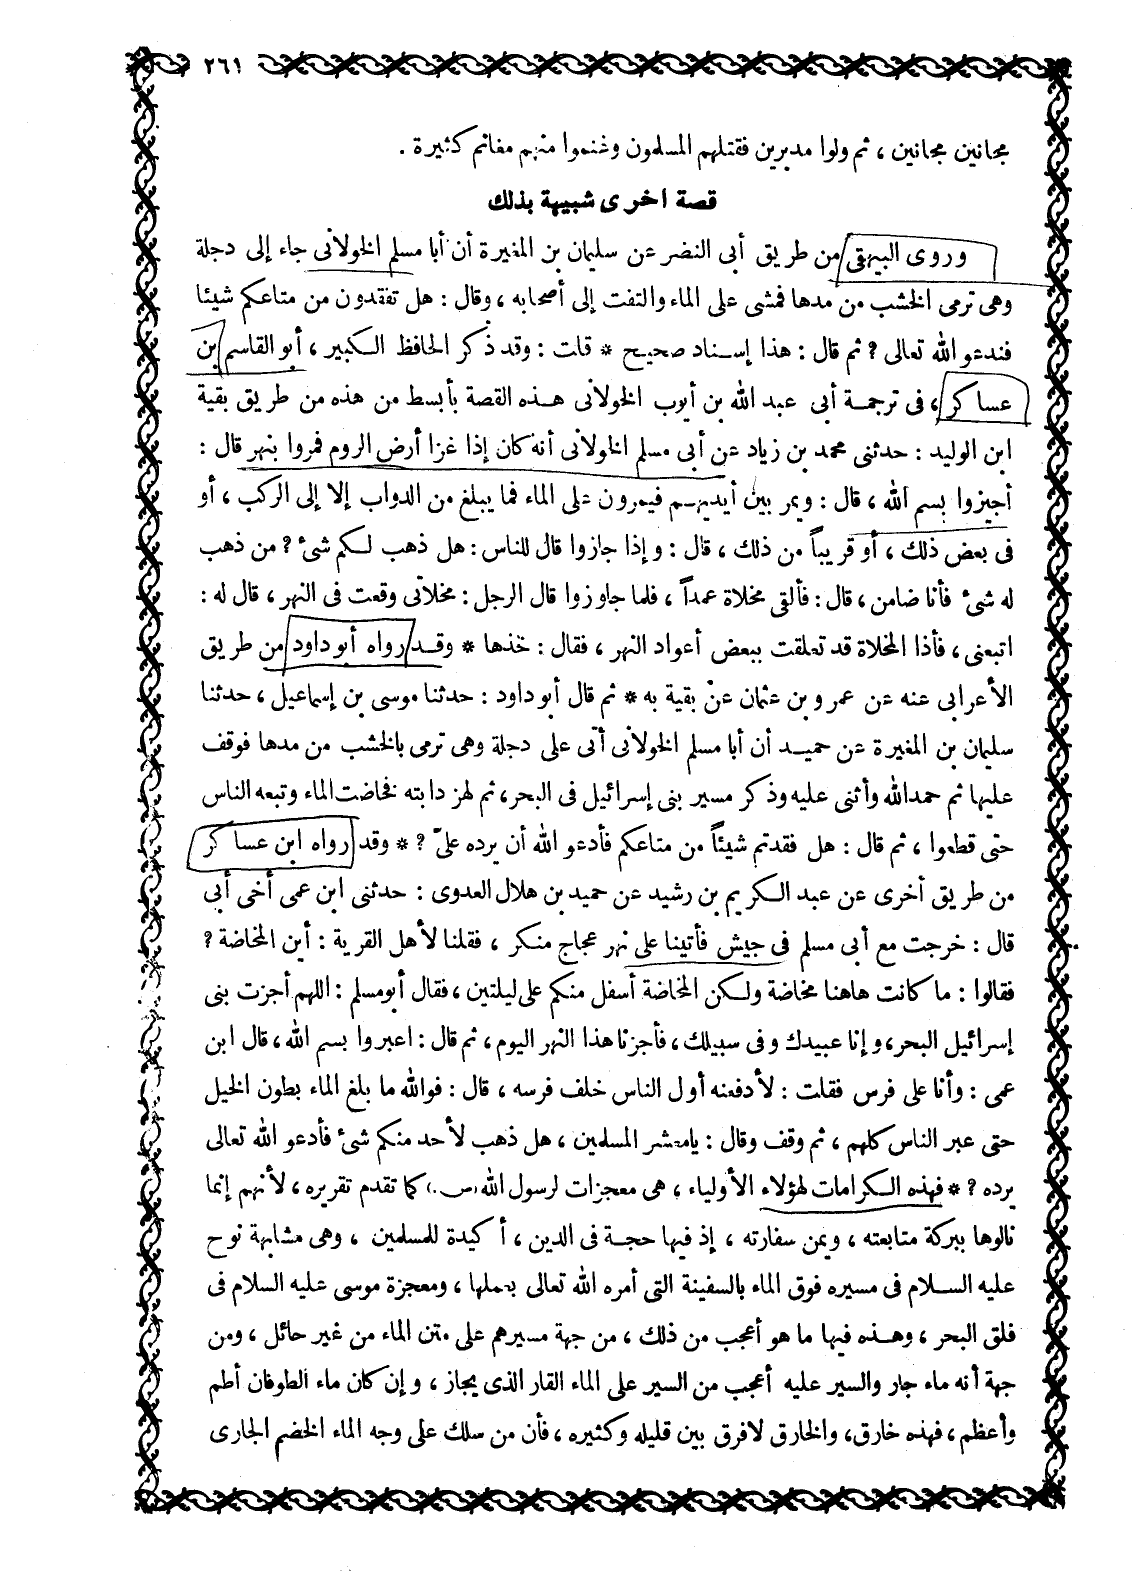 ٢٦١
مجانين مجانين ، ثم ولوا مدبرين فقتلهم المسلمون وغنموا منهم مغانم كثيرة .
قصة اخرى شبيهة بذلك
وروى البيهقى من طريق أبى النضر عن سليمان بن المغيرة أن أبا مسلم الخولانى جاء إلى دجلة
وهى ترمى الخشب من مدها فمشى على الماء والتفت إلى أصحابه ، وقال : هل تفقدون من متاعكم شيئا
فندعو الله تعالى ? ثم قال : هذا إسناد صحيح * قلت : وقد ذكر الحافظ الكبير ، أبو القاسم بن
عساكر ، فى ترجمة أبى عبد الله بن أيوب الخولانى هذه القصة بأبسط من هذه من طريق بقية
ابن الوليد : حدثنى محمد بن زياد عن أبى مسلم الخولانى أنه كان إذا غزا أرض الروم فمروا بنهر قال :
أجيزوا بسم الله ، قال : ويمر بين أيديهم فيمرون على الماء فما يبلغ من الدواب إلا إلى الركب ، أو
فى بعض ذلك ، أو قريباً من ذلك ، قال : وإذا جازوا قال للناس : هل ذهب لكم شئ ? من ذهب
له شئ فأنا ضامن ، قال : فألقى مخلاة عمداً ، فلما جاوزوا قال الرجل : مخلاتى وقعت فى النهر ، قال له :
اتبعنى ، فأذا المخلاة قد تعلقت ببعض أعواد النهر ، فقال : خذها * وقد رواه أبو داود من طريق
الأعرابى عنه عن عمرو بن عثمان عن بقية به * ثم قال أبو داود : حدثنا موسى بن إسماعيل ، حدثنا
سليمان بن المغيرة عن حميد أن أبا مسلم الخولانى أتى على دجلة وهى ترمى بالخشب من مدها فوقف
عليها ثم حمد الله وأثنى عليه وذكر مسير بنى إسرائيل فى البحر ، ثم لهز دابته فخاضت الماء وتبعه الناس
حتى قطعوا ، ثم قال : هل فقدتم شيئاً من متاعكم فأدعو الله أن يرده علىّ ? * وقد رواه ابن عساكر
من طريق أخرى عن عبد الكريم بن رشيد عن حميد بن هلال العدوى : حدثنى ابن عمى أخى أبى
قال : خرجت مع أبى مسلم فى جيش فأتينا على نهر عجاج منكر ، فقلنا لأهل القرية : أين المخاضة ?
فقالوا : ما كانت هاهنا مخاضة ولكن المخاضة أسفل منكم على ليلتين ، فقال أبو مسلم : اللهم أجزت بنى
إسرائيل البحر ، وإنا عبيدك وفى سبيلك ، فأجزنا هذا النهر اليوم ، ثم قال : اعبروا بسم الله ، قال ابن
عمى : وأنا على فرس فقلت : لأدفعنه أول الناس خلف فرسه ، قال : فوالله ما بلغ الماء بطون الخيل
حتى عبر الناس كلهم ، ثم وقف وقال : يامعشر المسلمين ، هل ذهب لأحد منكم شئ فأدعو الله تعالى
يرده ? * فهذه الكرامات لهؤلاء الأولياء ، هى معجزات لرسول الله (ص.) كما تقدم تقريره ، لأنهم إنما
نالوها ببركة متابعته ، ويمن سفارته ، إذ فيها حجة فى الدين ، أكيدة للمسلمين ، وهى مشابهة نوح
عليه السلام فى مسيره فوق الماء بالسفينة التى أمره الله تعالى بعملها ، ومعجزة موسى عليه السلام فى
فلق البحر ، وهذه فيها ما هو أعجب من ذلك ، من جهة مسيرهم على متن الماء من غير حائل ، ومن
جهة أنه ماء جار والسير عليه أعجب من السير على الماء القار الذى يجاز ، وإن كان ماء الطوفان أطم
وأعظم ، فهذه خارق ، والخارق لا فرق بين قليله وكثيره ، فأن من سلك على وجه الماء الخضم الجارى